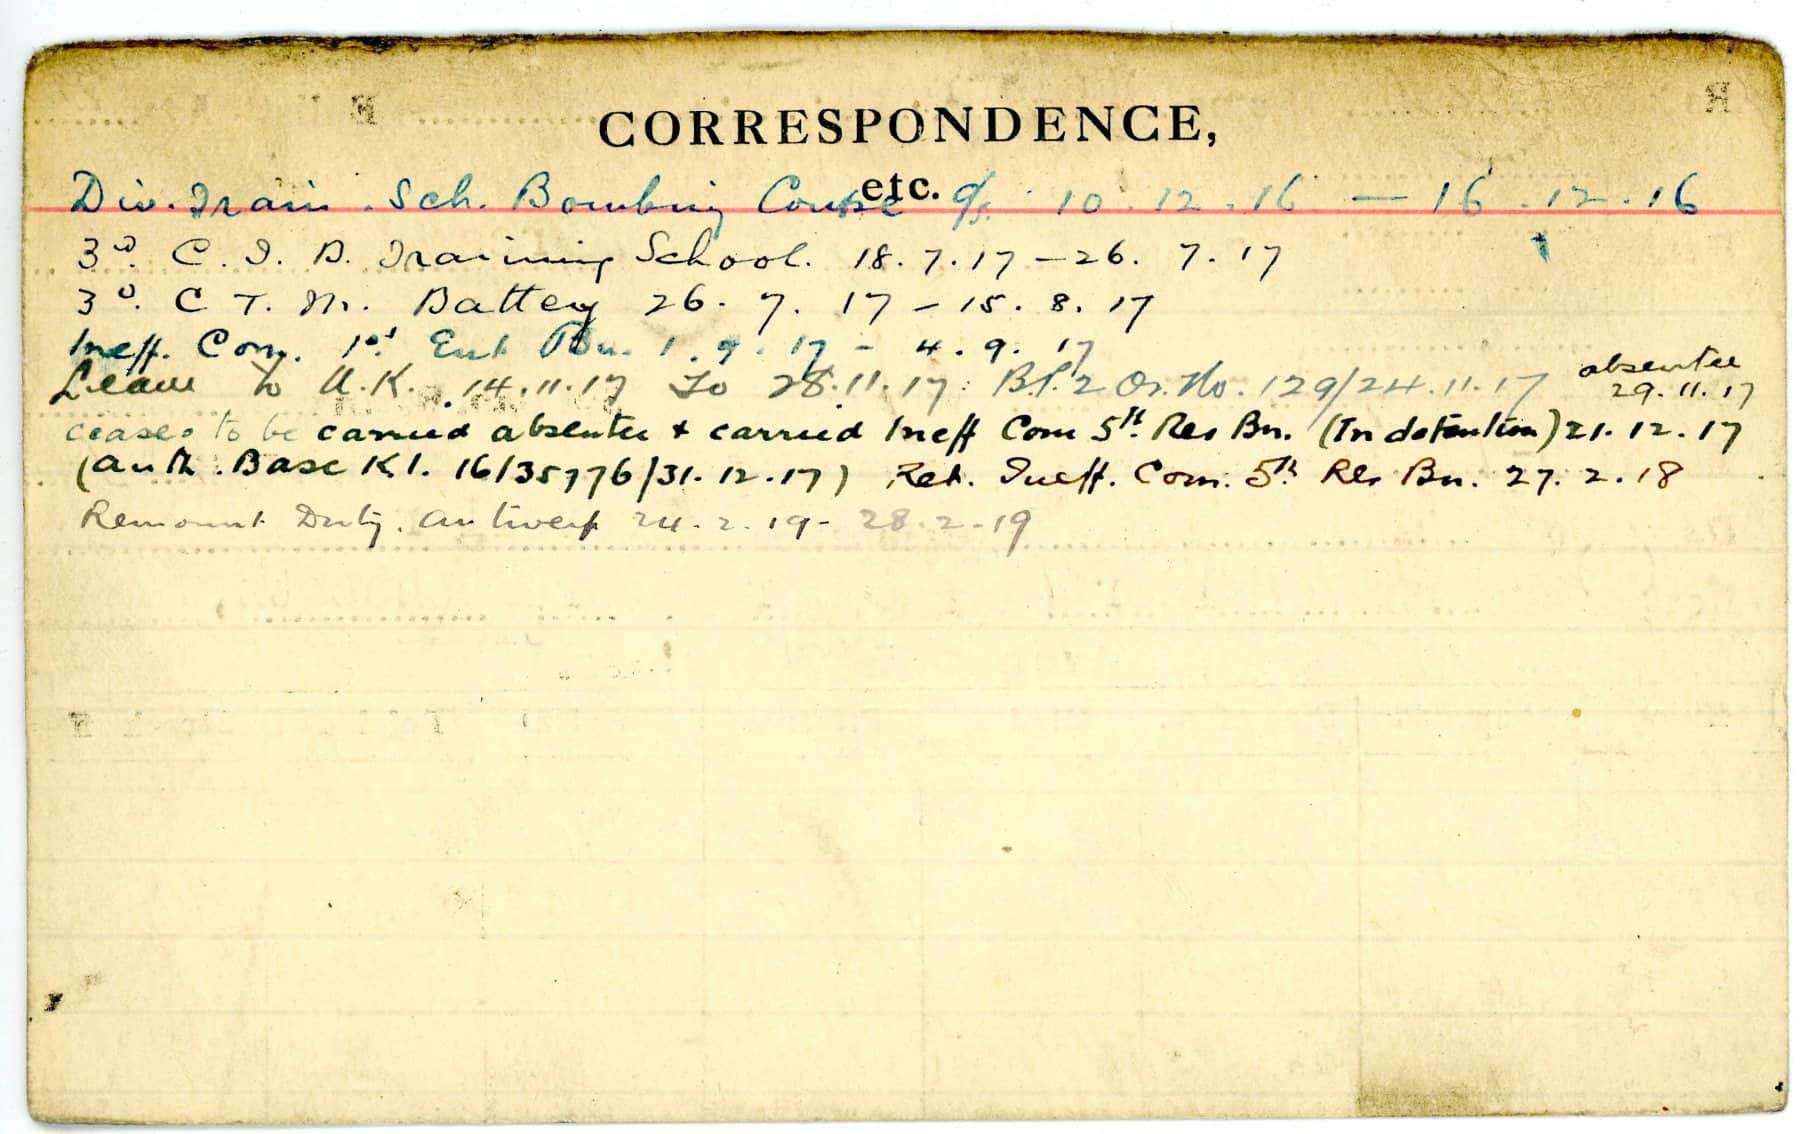 CORRESPONDENCE,
etc.
Div. Train. Sch. Bombing Course 10.12.16 — 16.12.16
3rd. C. I. B. Training School. 18.7.17 — 26.7.17
3rd. C T. M. Battery 26.7.17 – 15.8.17
Ineff. Com. 1st Ent Bn. 1.9.17 – 4.9.17
Leave to U.K. 14.11.17 to 28.11.17. Or. No. 129/24.11.17 absentee
29.11.17
ceases to be carried absentee + carried Ineff Com 5th Res Bn. (In detention) 21.12.17
(Auth. Base K1. 16/35776/31.12.17) Ret. Ineff. Com. 5th Res Bn. 27.2.18
Remount Duty. Antwerp 24.2.19 - 28.2.19